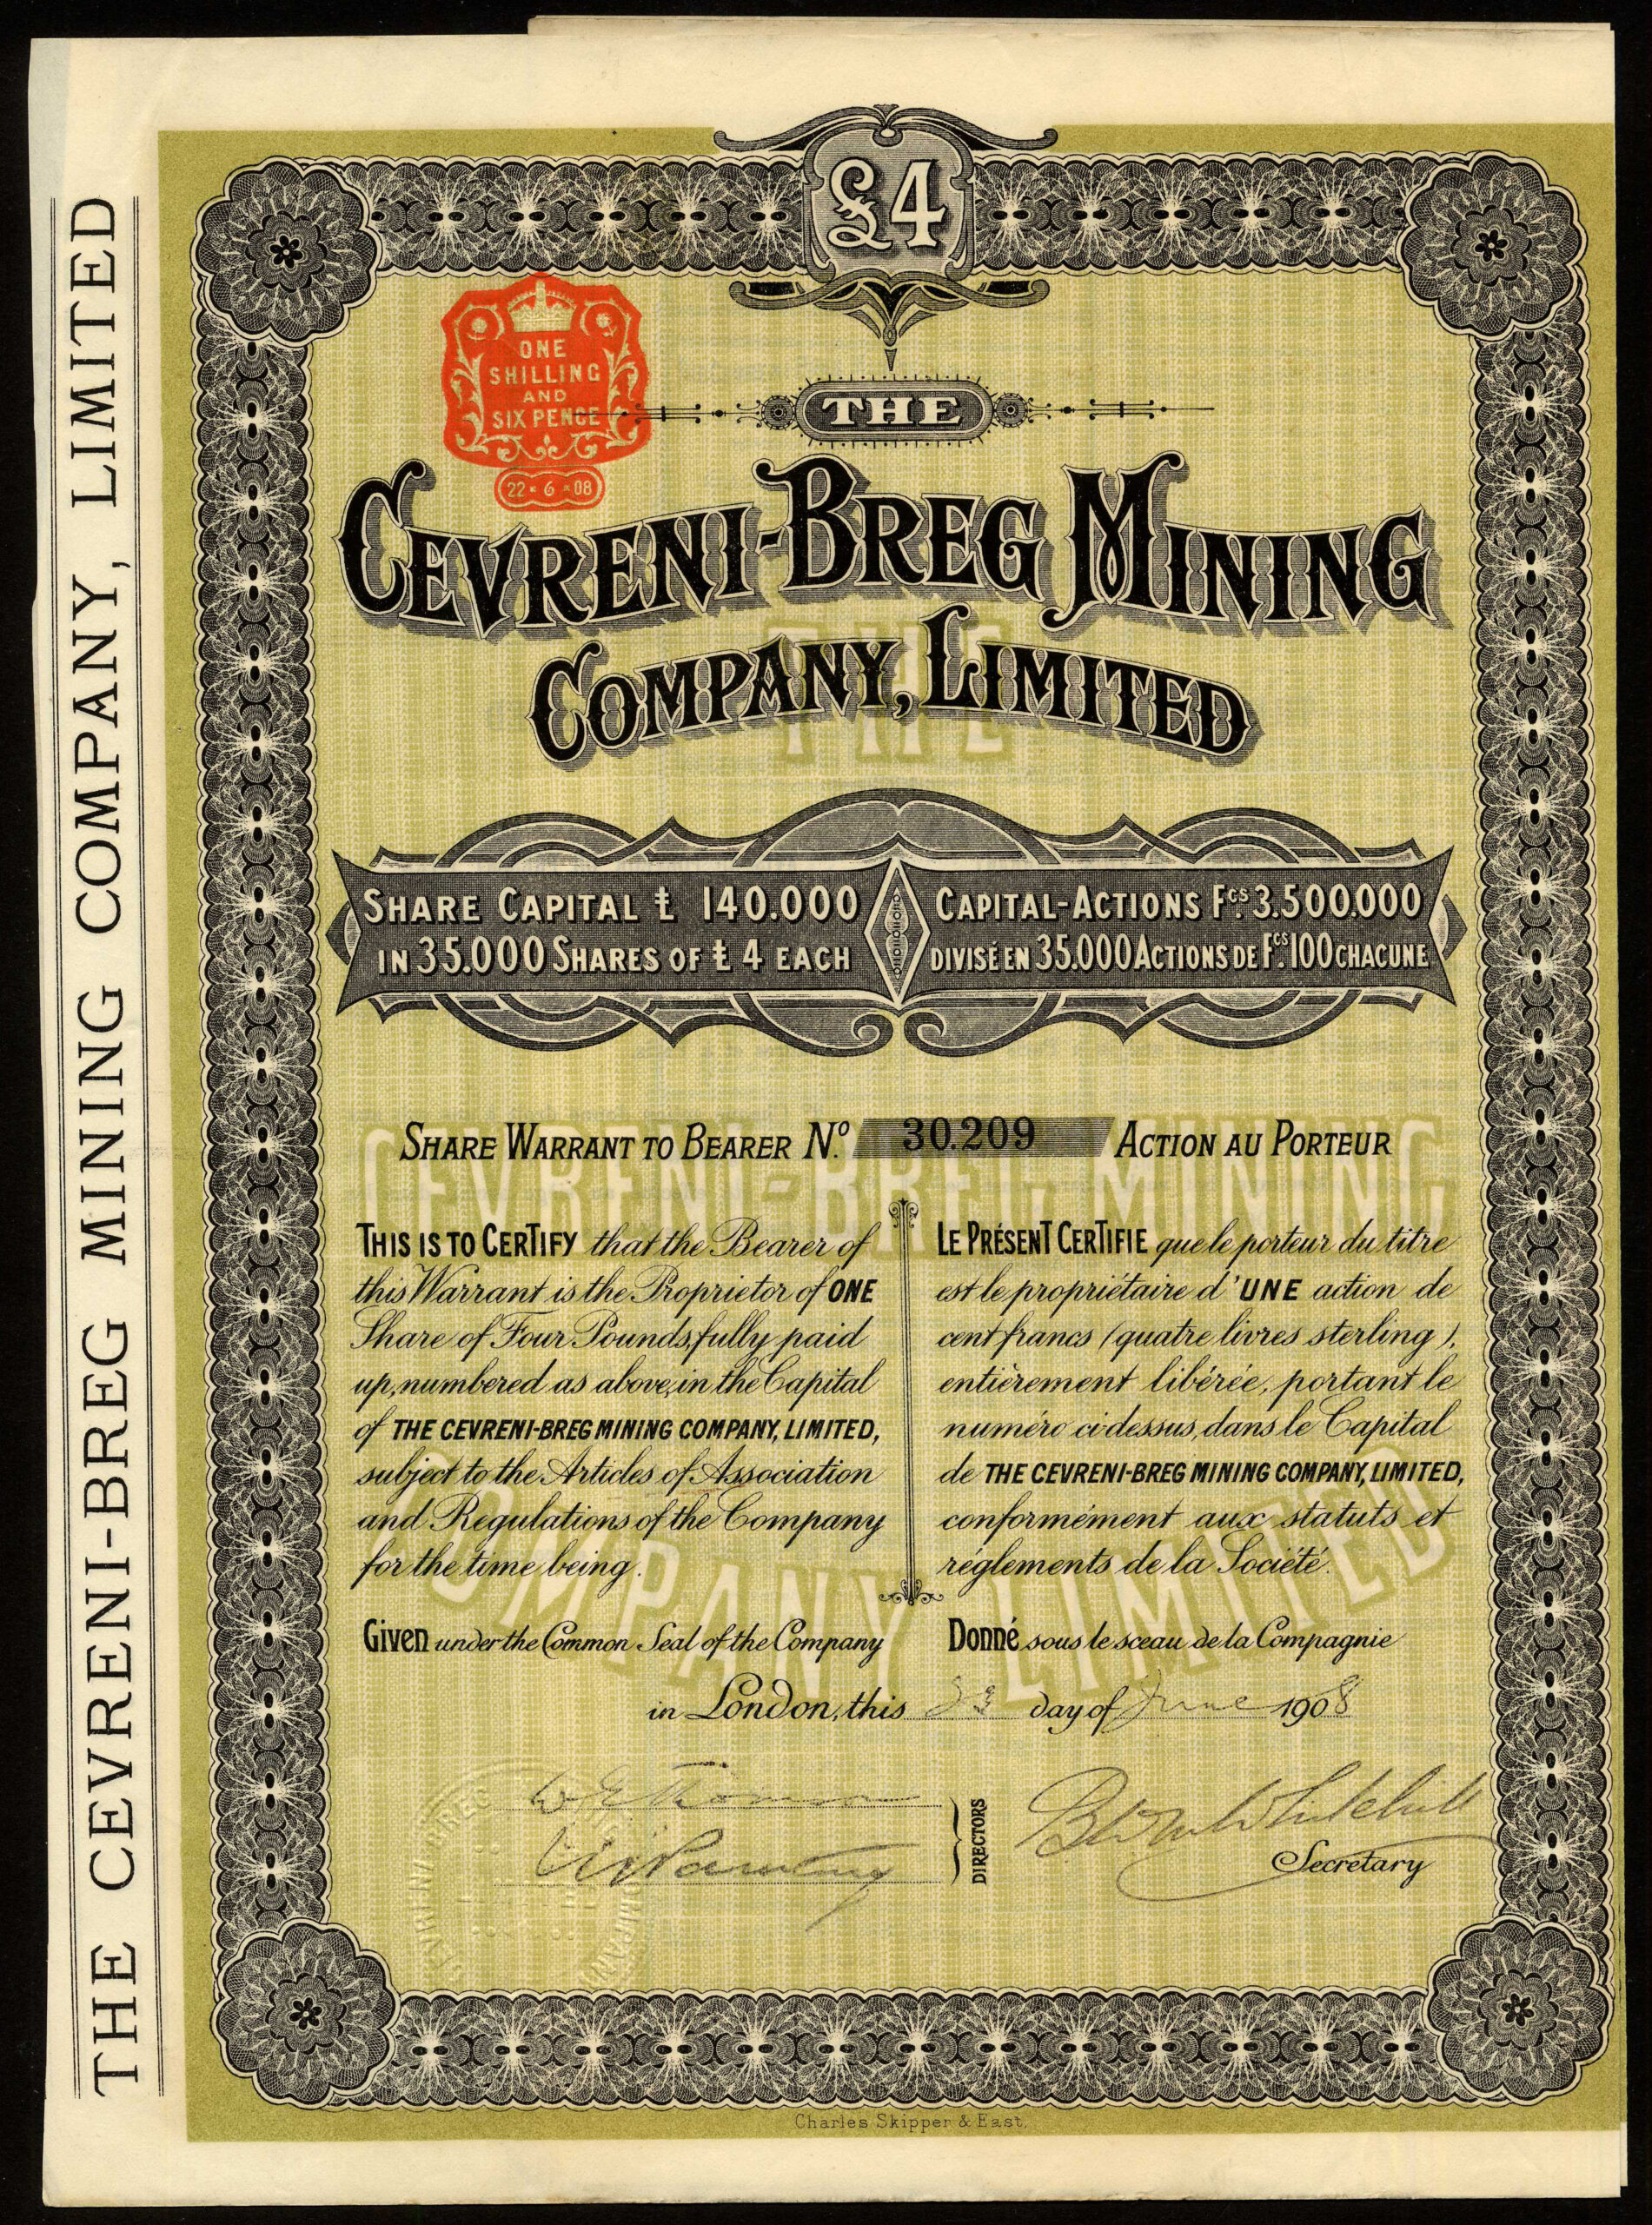 THE CEVRENI-BREG MINING COMPANY, LIMITED
£4
ONE
SHILLING
AND
SIX PENCE
22 • 6 • 08
THE
CEVRENI-BREG MINING
COMPANY, LIMITED
SHARE CAPITAL £ 140.000
IN 35.000 SHARES OF £ 4 EACH
CAPITAL-ACTIONS Fcs. 3.500.000
DIVISÉ EN 35.000 ACTIONS DE Fcs. 100 CHACUNE
SHARE WARRANT TO BEARER No. 30.209 ACTION AU PORTEUR
THIS IS TO CERTIFY that the Bearer of
this Warrant is the Proprietor of ONE
Share of Four Pounds, fully paid
up, numbered as above, in the Capital
of THE CEVRENI-BREG MINING COMPANY, LIMITED,
subject to the Articles of Association
and Regulations of the Company
for the time being.
LE PRÉSENT CERTIFIE que le porteur du titre
est le propriétaire d'UNE action de
cent francs (quatre livres sterling),
entièrement libérée, portant le
numéro ci-dessus, dans le Capital
de THE CEVRENI-BREG MINING COMPANY, LIMITED,
conformément aux statuts et
réglements de la Société.
Given under the Common Seal of the Company
Donné sous le sceau de la Compagnie
in London, this 23 day of June 1908
DIRECTORS
Secretary
THE
CEVRENI-BREG MINING
COMPANY LIMITED
CEVRENI BREG
COMPANY
Charles Skipper & East.